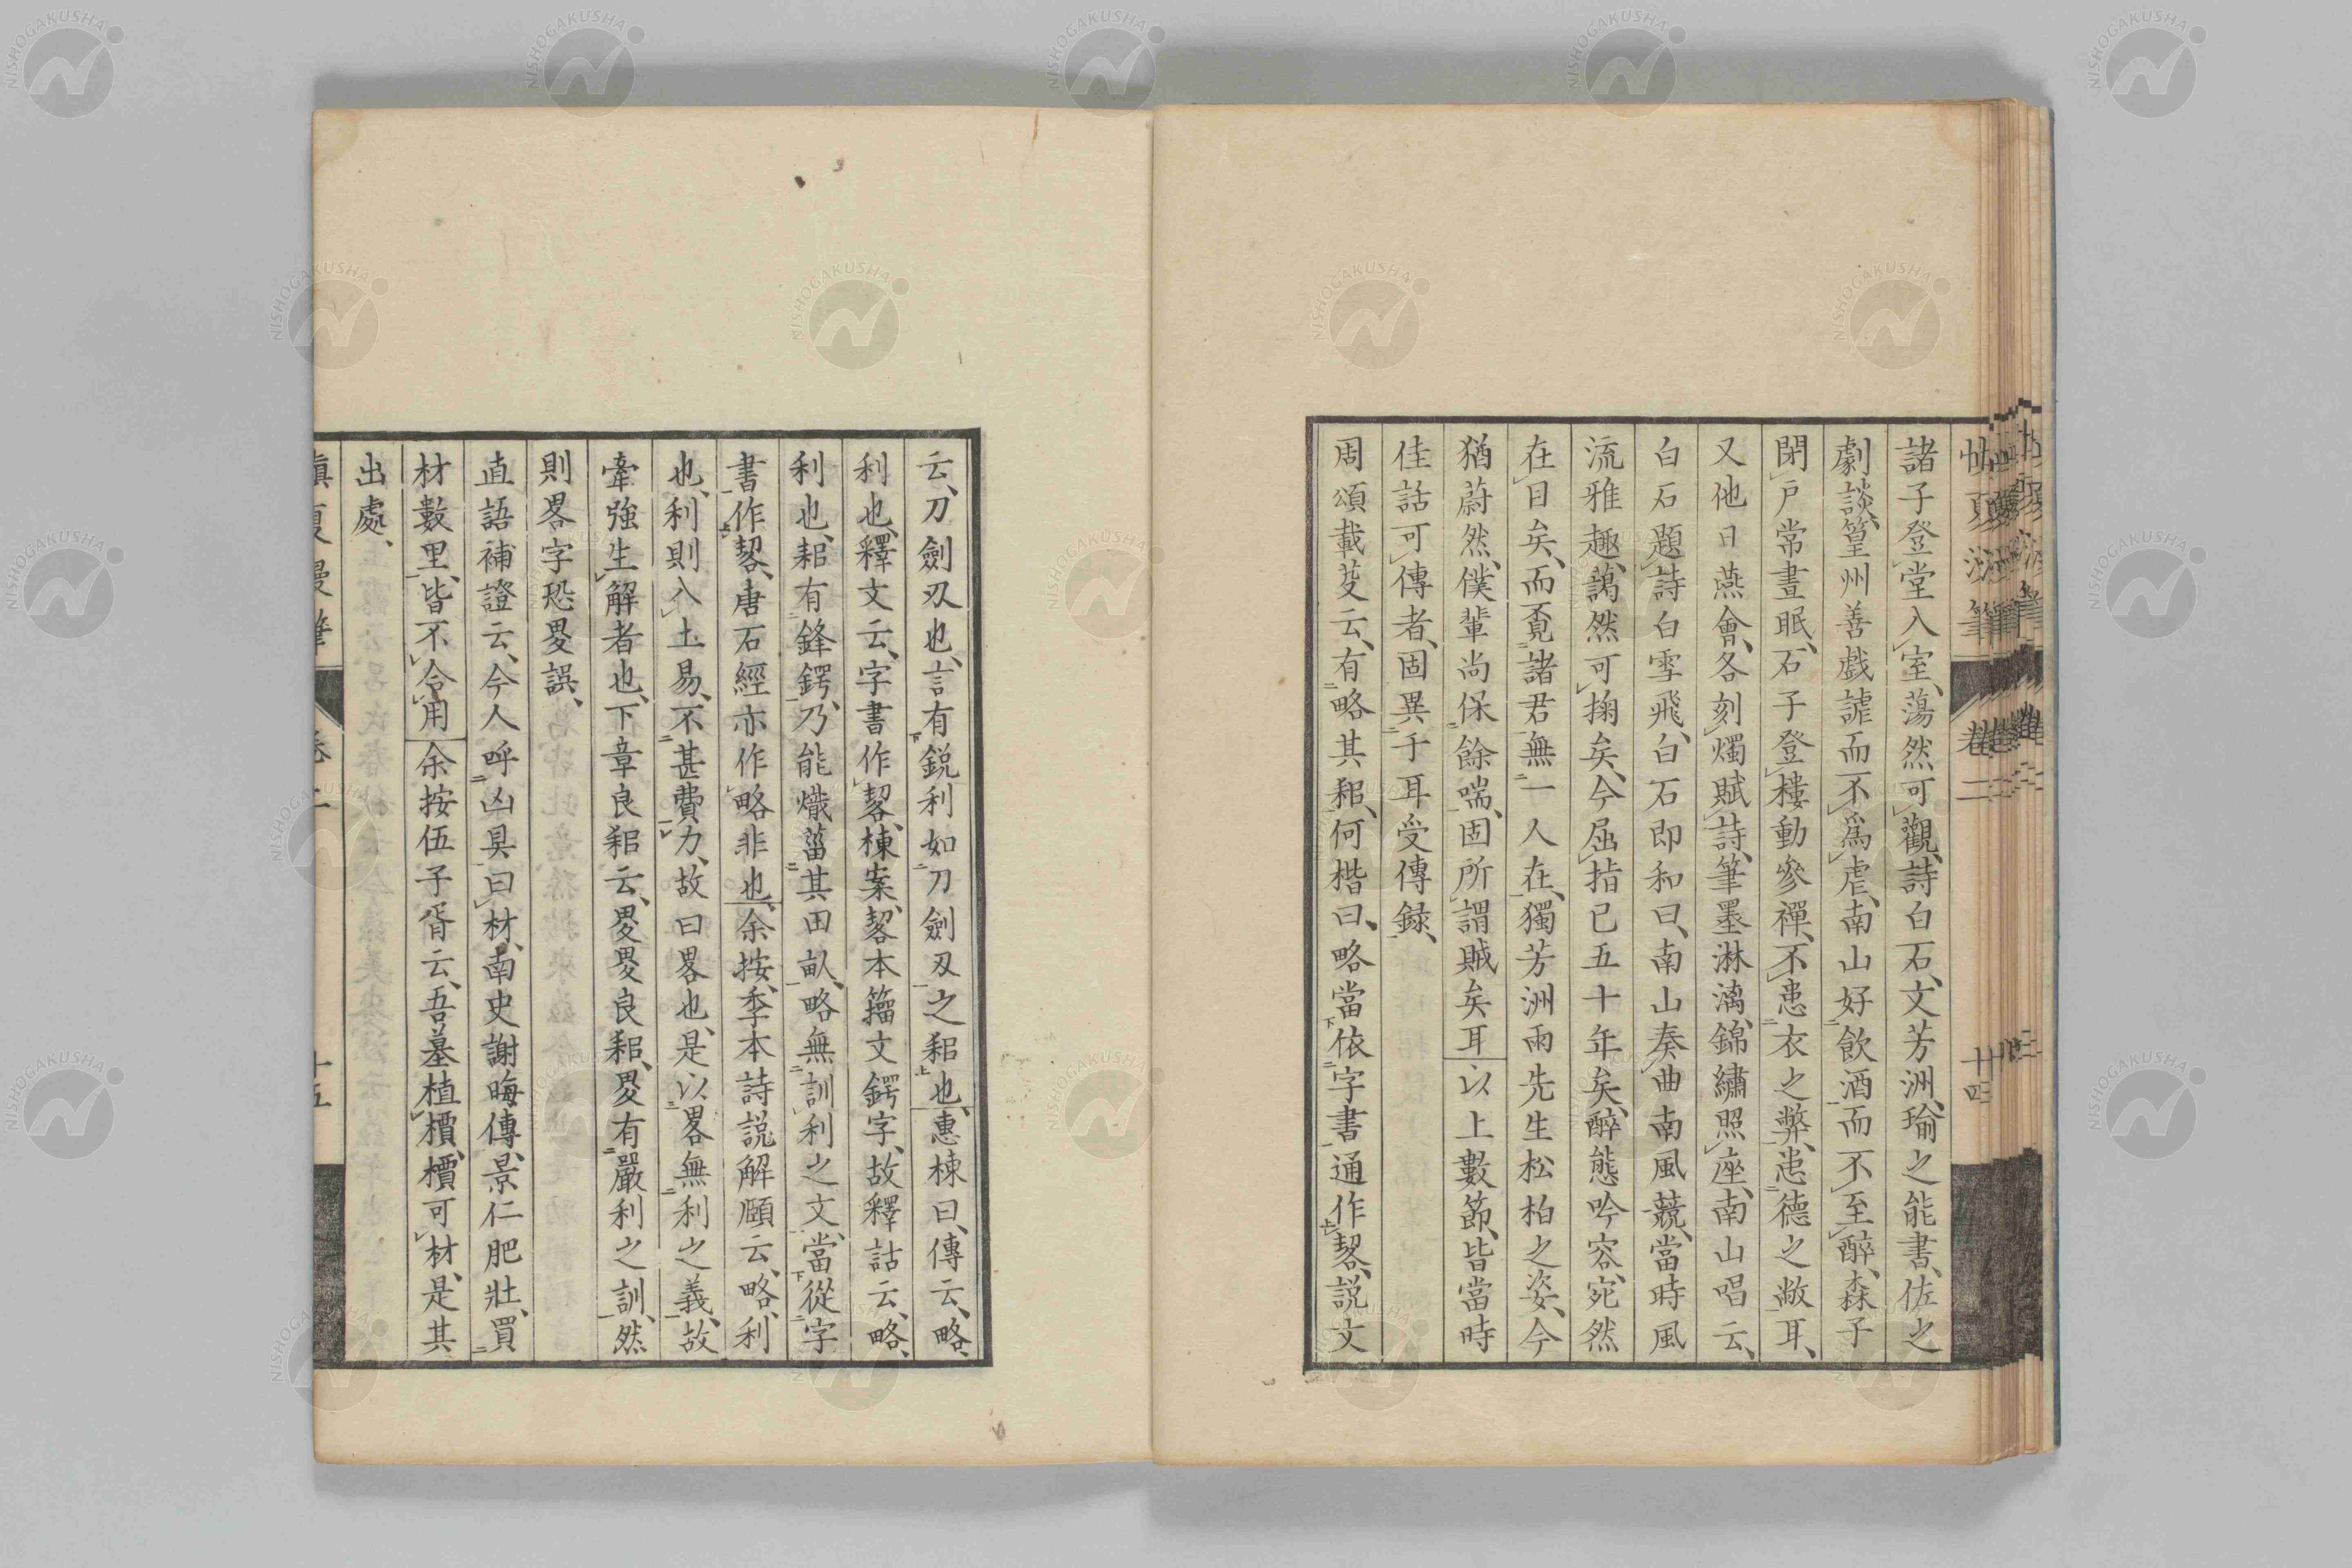 諸子登堂入室、蕩然可觀、詩白石、文芳洲、瑜之能書、佐之
劇談、篁州善戯謔而不爲虐、南山好飲酒而不至醉、森子
閉戸常晝眠、石子登樓動參禪、不患衣之弊、患德之敝耳、
又他日燕會、各刻燭賦詩、筆墨淋漓、錦繡照座、南山唱云、
白石題詩白雪飛、白石即和曰、南山奏曲南風競、當時風
流雅趣、藹然可掬矣、今屈指已五十年矣、醉態吟容、宛然
在目矣、而覔諸君無一人在、獨芳洲雨先生松柏之姿、今
猶蔚然、僕輩尚保餘喘、固所謂賊矣耳以上數節、皆當時
佳話可傳者、固異于耳受傳録、
周頌載芟云、有略其耜、何楷曰、略當依字書通作䂮、説文
云、刀劍刃也、言有鋭利如刀劍刃之耜也、惠棟曰、傳云、略、
利也、釋文云、字書作䂮、棟案、䂮本籀文鍔字、故釋詁云、略、
利也、耜有鋒鍔、乃能熾菑其田畝、略無訓利之文、當從字
書作䂮、唐石經亦作略非也、余按、季本詩説解頤云、略、利
也、利則入土易、不甚費力、故曰畧也、是以畧無利之義、故
牽強生解者也、下章良耜云、畟畟良耜、畟有嚴利之訓、然
則畧字恐畟誤、
直語補證云、今人呼凶具曰材、南史謝晦傳、景仁肥壯、買
材數里、皆不合用余按伍子胥云、吾墓植檟、檟可材、是其
出處、
卷二
十四